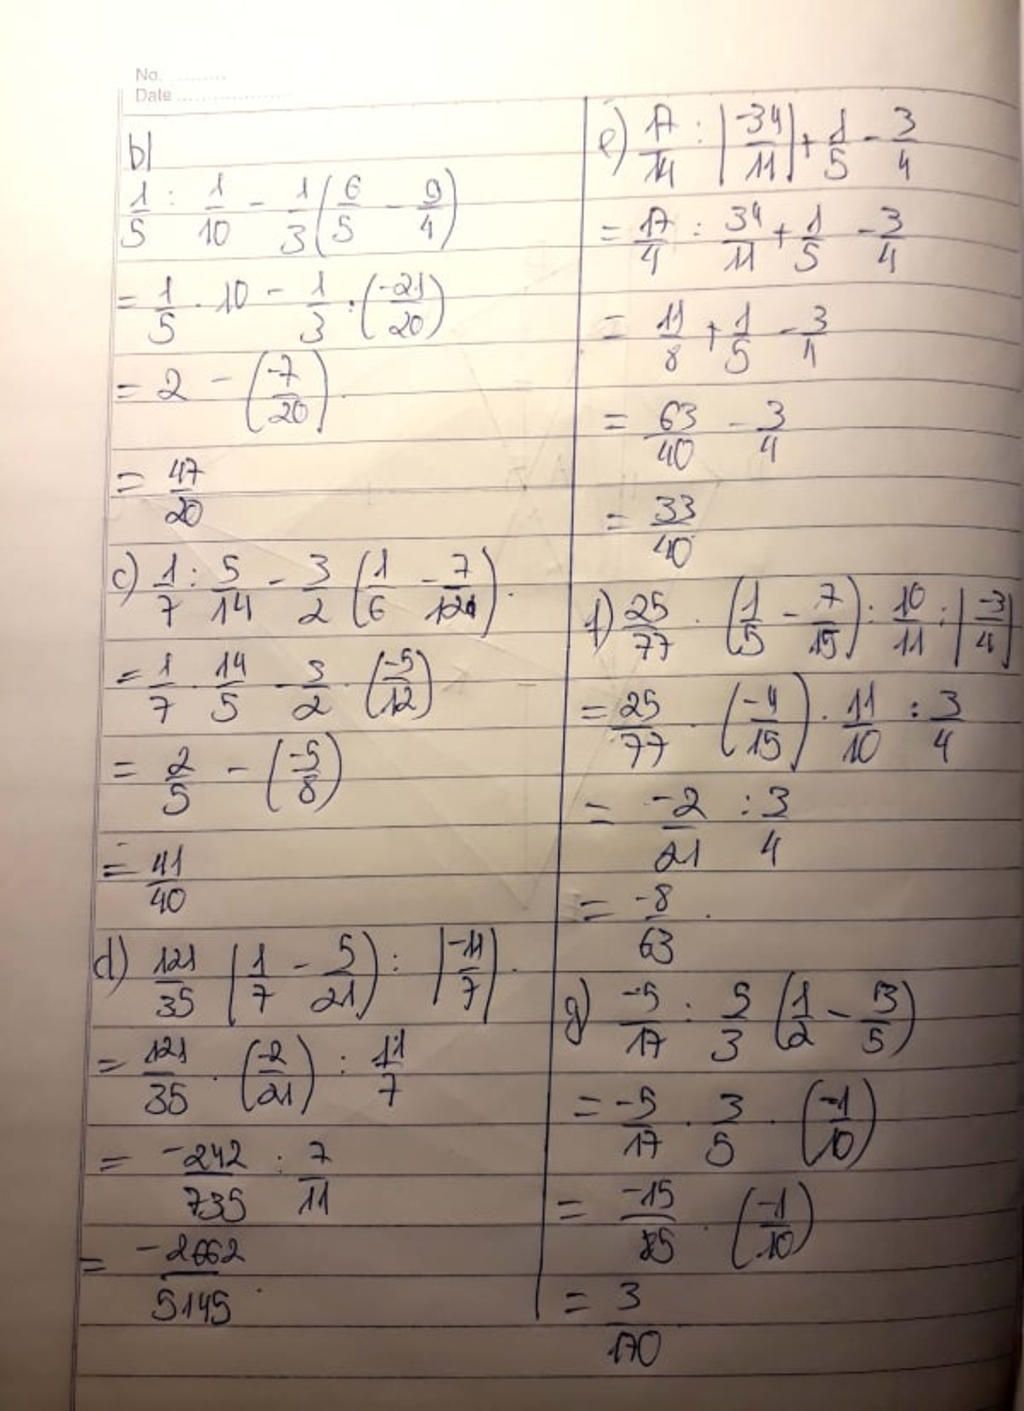 No. ..........
Date ....................
b)
1/5 : 1/10 - 1/3 (6/5 - 9/4)
= 1/5 . 10 - 1/3 . (-21/20)
= 2 - (-7/20)
= 47/20
c) 1/7 : 5/14 - 3/2 (1/6 - 7/12).
= 1/7 . 14/5 - 3/2 . (-5/12)
= 2/5 - (-5/8)
= 41/40
d) 121/35 (1/7 - 5/21) : |-11/7|.
= 121/35 . (-2/21) : 11/7
= -242/735 : 7/11
= -2662/5145.
e) 17/14 : |-34/11| + 1/5 - 3/4
= 17/4 : 34/11 + 1/5 - 3/4
= 11/8 + 1/5 - 3/4
= 63/40 - 3/4
= 33/40
f) 25/77 . (1/5 - 7/15) : 10/11 : |-3/4|
= 25/77 . (-4/15) . 11/10 : 3/4
= -2/21 : 3/4
= -8/63.
g) -5/17 : 5/3 (1/2 - 3/5)
= -5/17 . 3/5 . (-1/10)
= -15/85 . (-1/10)
= 3/170